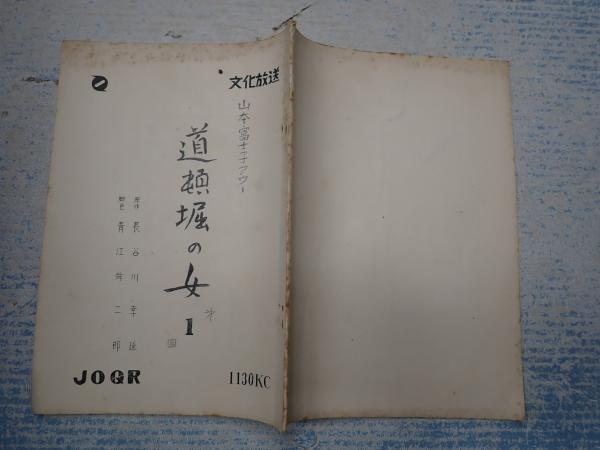 文化放送
山本富士子アワー
道頓堀の女
第
1
回
原 長谷川幸延
青江舜二郎
JOQR
1130KC